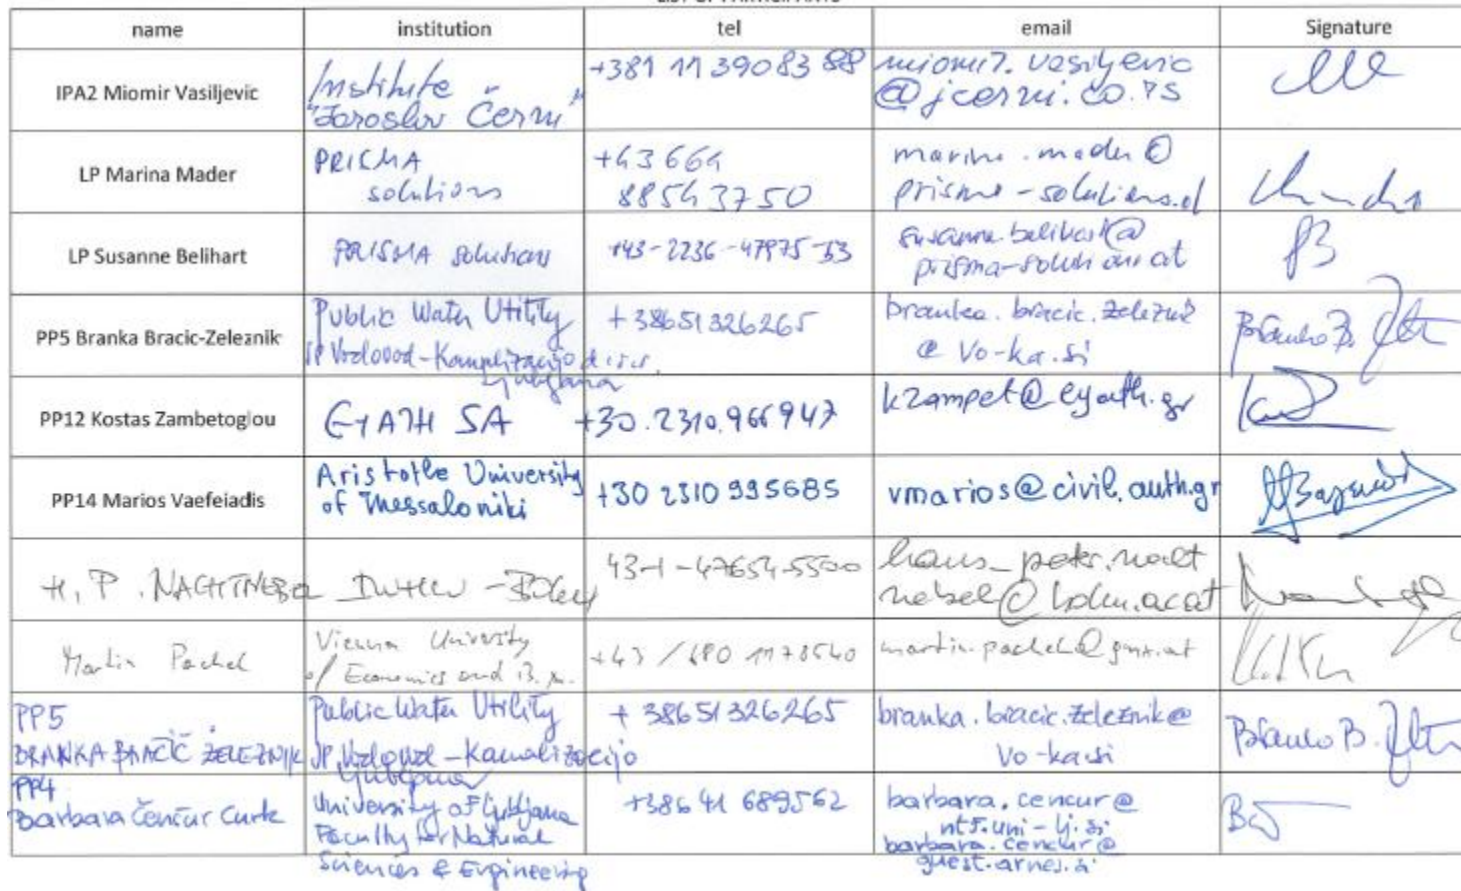 name institution tel email Signature
IPA2 Miomir Vasiljevic
Institute
"Jaroslav Černi"
+381 11 3908388
miomir.vasiljevic
@jcerni.co.rs
LP Marina Mader
PRISMA
solutions
+43 664
88543750
marina.mader@
prisma-solutions.at
LP Susanne Belihart
PRISMA solutions
+43-2236-47975-33
susanne.belihart@
prisma-solutions.at
PP5 Branka Bracic-Zeleznik
Public Water Utility
JP Vodovod-Kanalizacija d.o.o.
Ljubljana
+38651326265
branka.bracic.zeleznik
@vo-ka.si
PP12 Kostas Zambetoglou
EYATH SA
+30.2310.966947
kzampet@eyath.gr
PP14 Marios Vaefeiadis
Aristotle University
of Thessaloniki
+30 2310 995685
vmarios@civil.auth.gr
H.P. NACHTNEBEL
43-1-47654-5500
hans_peter.nacht
nebel@boku.ac.at
Martin Pachel
Vienna University
of Economics and B.
martin.pachel@gmx.at
PP5
BRANKA BRAČIČ ŽELEZNIK
Public Water Utility
JP Vodovod-Kanalizacija
Ljubljana
+38651326265
branka.bracic.zeleznik@
vo-ka.si
Branka B.
PP4
Barbara Čenčur Curk
University of Ljubljana
Faculty for Natural
Sciences & Engineering
+386 41 689562
barbara.cencur@
ntf.uni-lj.si
barbara.cencur@
guest.arnes.si